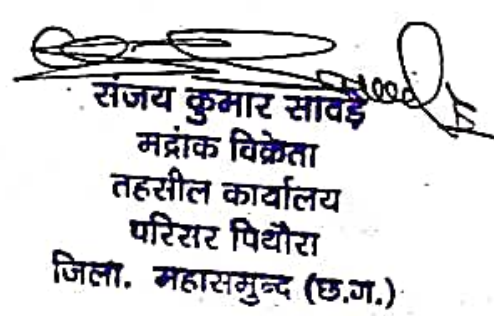 संजय कुमार सावड़े
मद्रांक विक्रेता
तहसील कार्यालय
परिसर पिथौरा
जिला. महासमुन्द (छ.ग.)